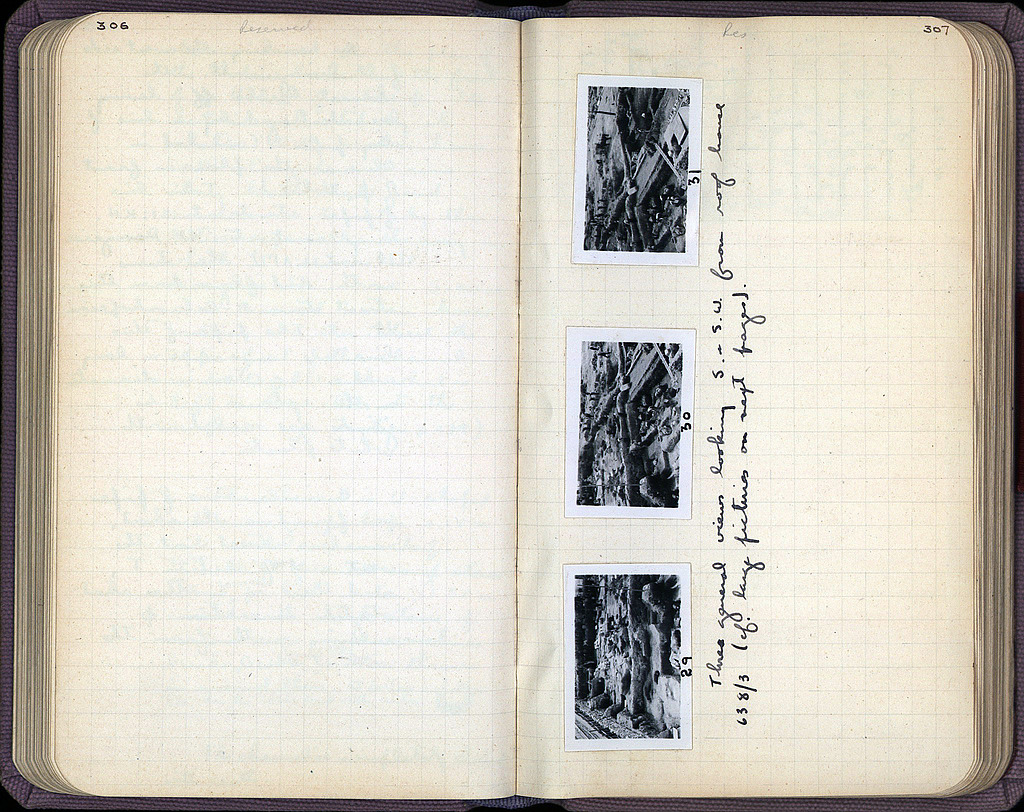 306
Reserved
Res
307
31
30
29
Three general views looking S. - S.W. from roof house
638/3 (cf. large pictures on next pages).